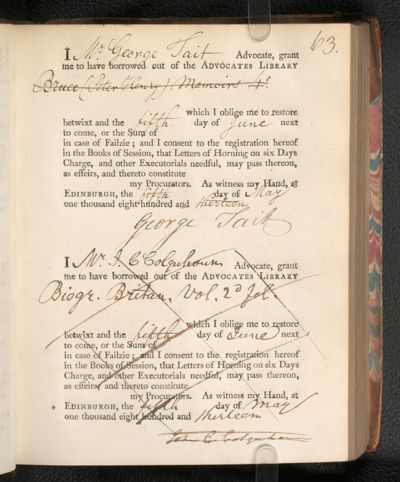 63.
I Mr. George Tait Advocate, grant
me to have borrowed out of the ADVOCATES LIBRARY
Bruce (Peter Henry) Memoirs 4o.
which I oblige me to restore
betwixt and the fifth day of June next
to come, or the Sum of
in case of Failzie; and I consent to the registration hereof
in the Books of Session, that Letters of Horning on six Days
Charge, and other Executorials needful, may pass thereon,
as effeirs, and thereto constitute
my Procurators. As witness my Hand, at
EDINBURGH, the fifth day of May
one thousand eight hundred and thirteen
George Tait
I Mr. J. C Colquhoun Advocate, grant
me to have borrowed out of the ADVOCATES LIBRARY
Biogr. Britan. Vol. 2d fol.
which I oblige me to restore
betwixt and the fifth day of June next
to come, or the Sum of
in case of Failzie; and I consent to the registration hereof
in the Books of Session, that Letters of Horning on six Days
Charge, and other Executorials needful, may pass thereon,
as effeirs, and thereto constitute
my Procurators. As witness my Hand, at
EDINBURGH, the fifth day of May
one thousand eight hundred and thirteen
John C Colquhoun